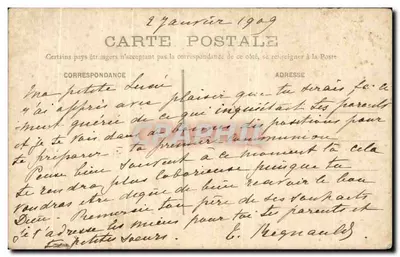 2 Janvier 1909
CARTE POSTALE
Certains pays étrangers n'acceptent pas la correspondance de ce côté, se renseigner à la Poste.
CORRESPONDANCE ADRESSE
Ma petite Lucie
J'ai appris avec plaisir que tu serais
guérie de ce qui inquiétait tes parents
et je te vois dans de dispositions pour
te préparer ta première communion
Pense bien souvent à ce moment tu cela
te rendra plus laborieuse puisque tu
voudras être digne de bien recevoir le bon
Dieu. Remercie ton père de ses souhaits
j'adresse les miens pour toi tes parents et
tes petites soeurs. E. Regnault